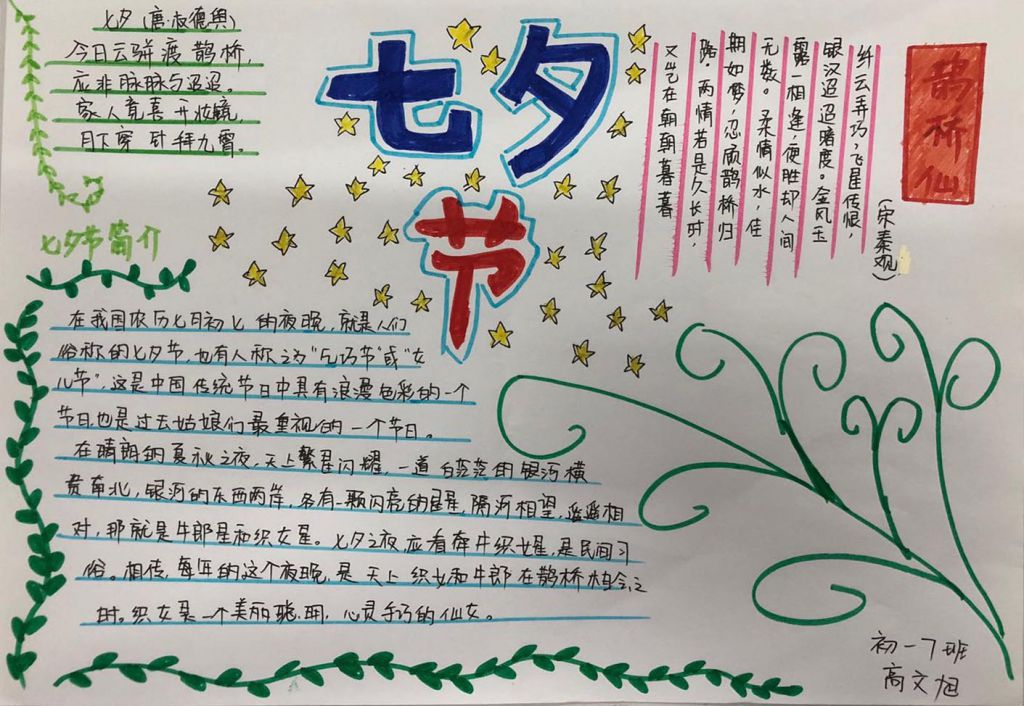 七夕(唐·权德舆)
今日云骈渡鹊桥，
应非脉脉与迢迢。
家人竟喜开妆镜，
月下穿针拜九霄。
七夕
节
鹊桥仙
(宋秦观)
纤云弄巧，飞星传恨，
银汉迢迢暗度。金风玉
露一相逢，便胜却人间
无数。柔情似水，佳
期如梦，忍顾鹊桥归
路，两情若是久长时，
又岂在朝朝暮暮
七夕节简介
在我国农历七月初七的夜晚，就是人们
俗称的七夕节，也有人称之为“乞巧节”或“女
儿节”，这是中国传统节日中具有浪漫色彩的一个
节日，也是过去姑娘们最重视的一个节日。
在晴朗的夏秋之夜，天上繁星闪耀，一道白茫茫的银河横
贯南北，银河的东西两岸，各有一颗闪亮的星星，隔河相望，遥遥相
对，那就是牛郎星和织女星。七夕之夜，应看牵牛织女星，是民间习
俗。相传，每年的这个夜晚，是天上织女和牛郎在鹊桥相会之
时。织女是一个美丽聪明，心灵手巧的仙女。
初一7班
高文旭